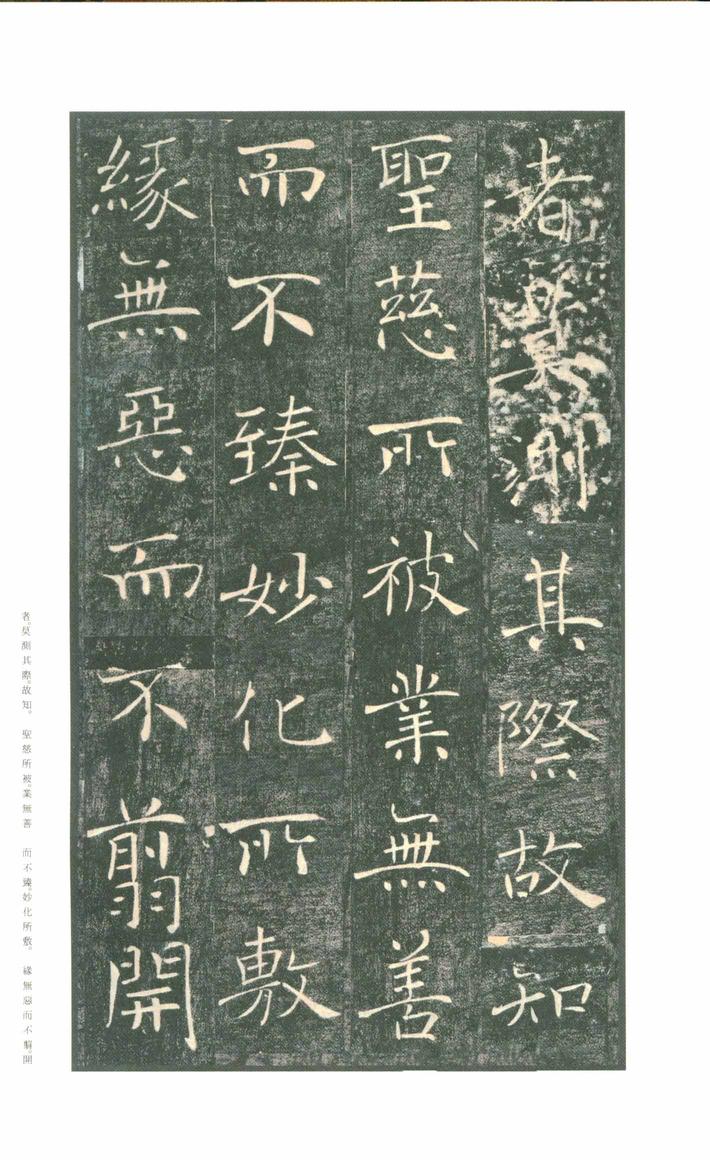 者莫測其際故知
聖慈所被業無善
而不臻妙化所敷
緣無惡而不翦開
者。莫測其際。故知。 聖慈所被。業無善 而不臻。妙化所敷。 緣無惡而不翦。開